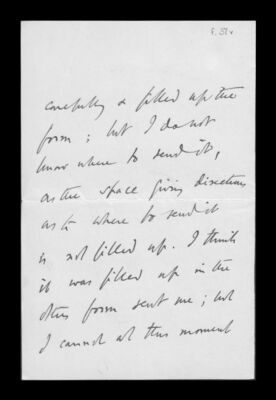 f. 51v
carefully & filled up the
form; but I do not
know where to send it,
as the space giving directions
as to where to send it
is not filled up. I think
it was filled up in the
other form sent me; but
I cannot at this moment